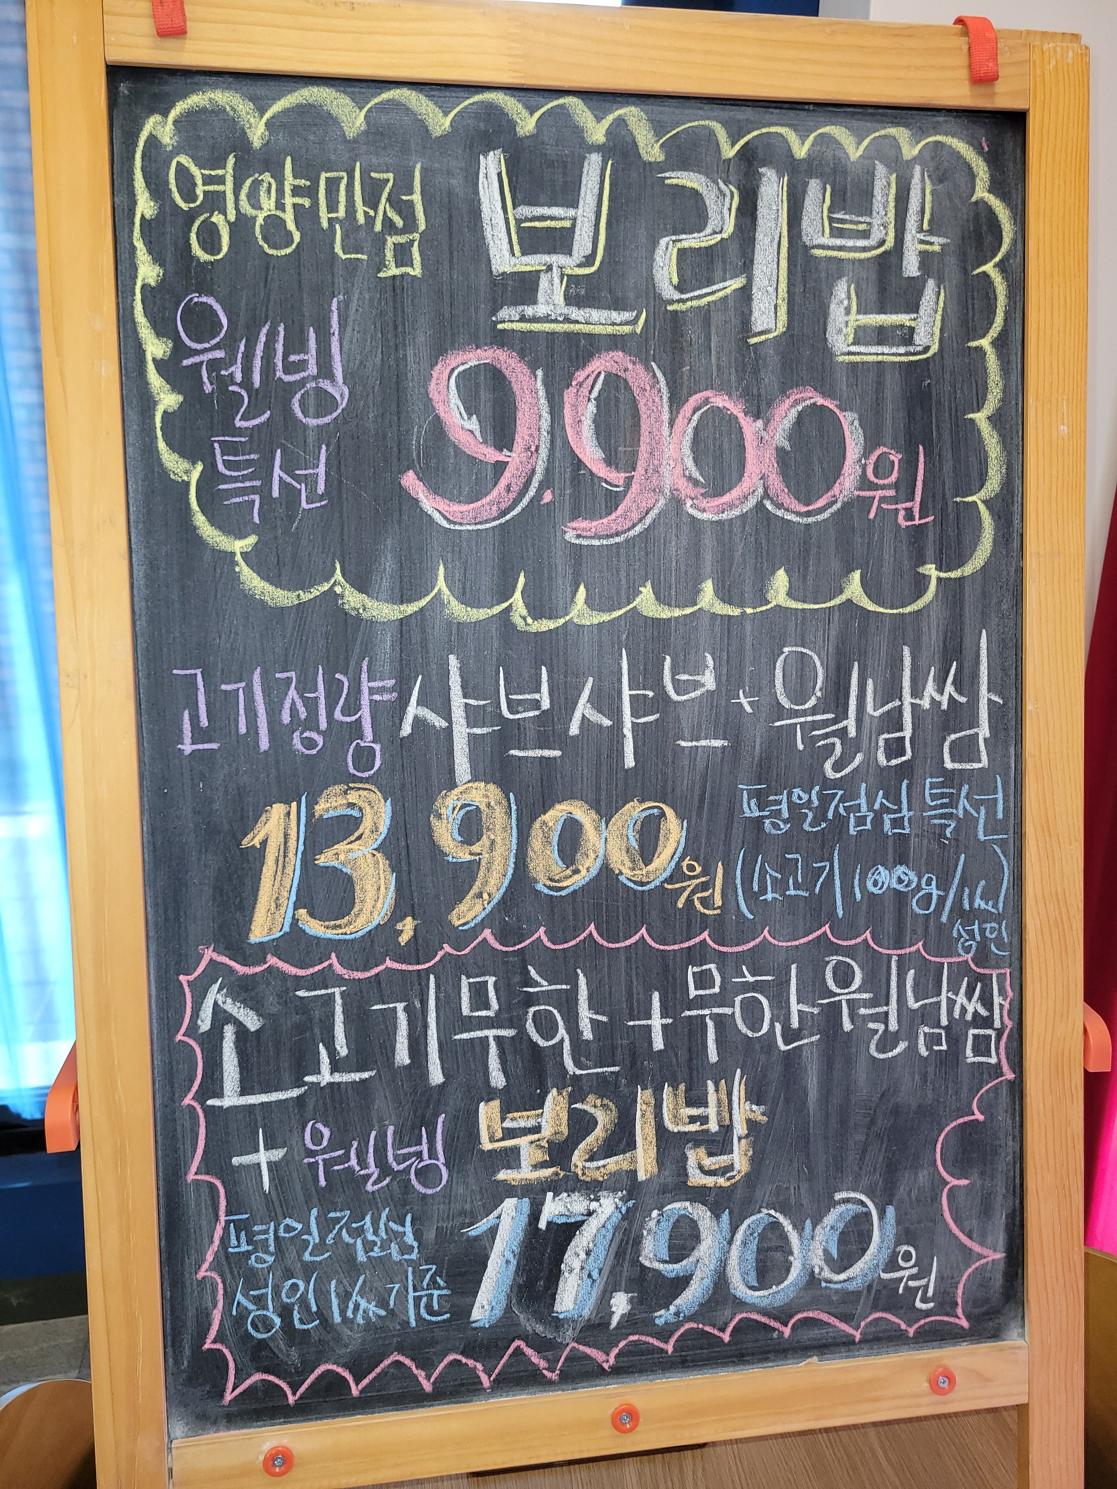 영양만점 보리밥
웰빙
특선 9.900원
고기정량 샤브샤브+월남쌈
13,900원 평일점심특선
(소고기100g/1인)
성인
소고기무한+무한월남쌈
+ 웰빙 보리밥
평일점심
성인1人기준 17,900원